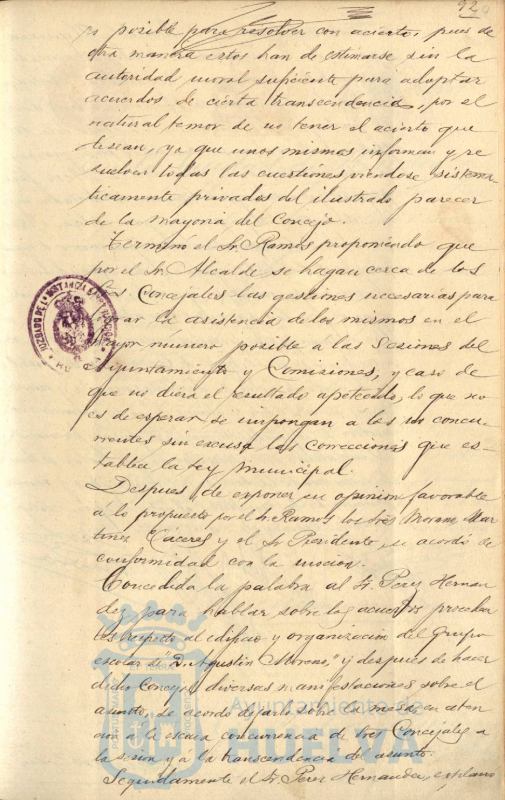 92
es posible para resolver con acierto, pues de
otra manera estos han de estimarse sin la
autoridad moral suficiente para adoptar
acuerdos de cierta transcendencia, por el
natural temor de no tener el acierto que
desean, ya que unos mismos informan y re
suelven todas las cuestiones viendose sistema-
ticamente privados del ilustrado parecer
de la mayoria del Concejo.
Termino el Sr. Ramos proponiendo que
por el Sr. Alcalde se hagan cerca de los
Sres Concejales las gestiones necesarias para
la asistencia de los mismos en el
mayor numero posible a las Sesiones del
Ayuntamiento y Comisiones, y caso de
que no diera el resultado apetecido, lo que no
es de esperar, se impongan a los no concu-
rrentes sin excusa las correcciones que es-
tablece la Ley Municipal.
Despues de exponer su opinion favorable
a lo propuesto por el Sr. Ramos los Sres Moreno, Mar
tinez Cáceres y el Sr. Presidente, se acordó de
conformidad con la mocion.
Concedida la palabra al Sr. Perez Hernan
dez para hablar sobre los acuerdos
respecto al edificio y organizacion del Grupo
escolar de "D. Agustin Moreno," y despues de hacer
dicho Concejal diversas manifestaciones sobre el
asunto, se acordó dejarlo sobre la mesa, en aten
cion a la escasa concurrencia de Sres Concejales a
la sesion y a la transcendencia del asunto.
Seguidamente el Sr. Perez Hernandez, explano
JUZGADO DE 1ª INSTANCIA
HUELVA
Ayuntamiento de
HUELVA